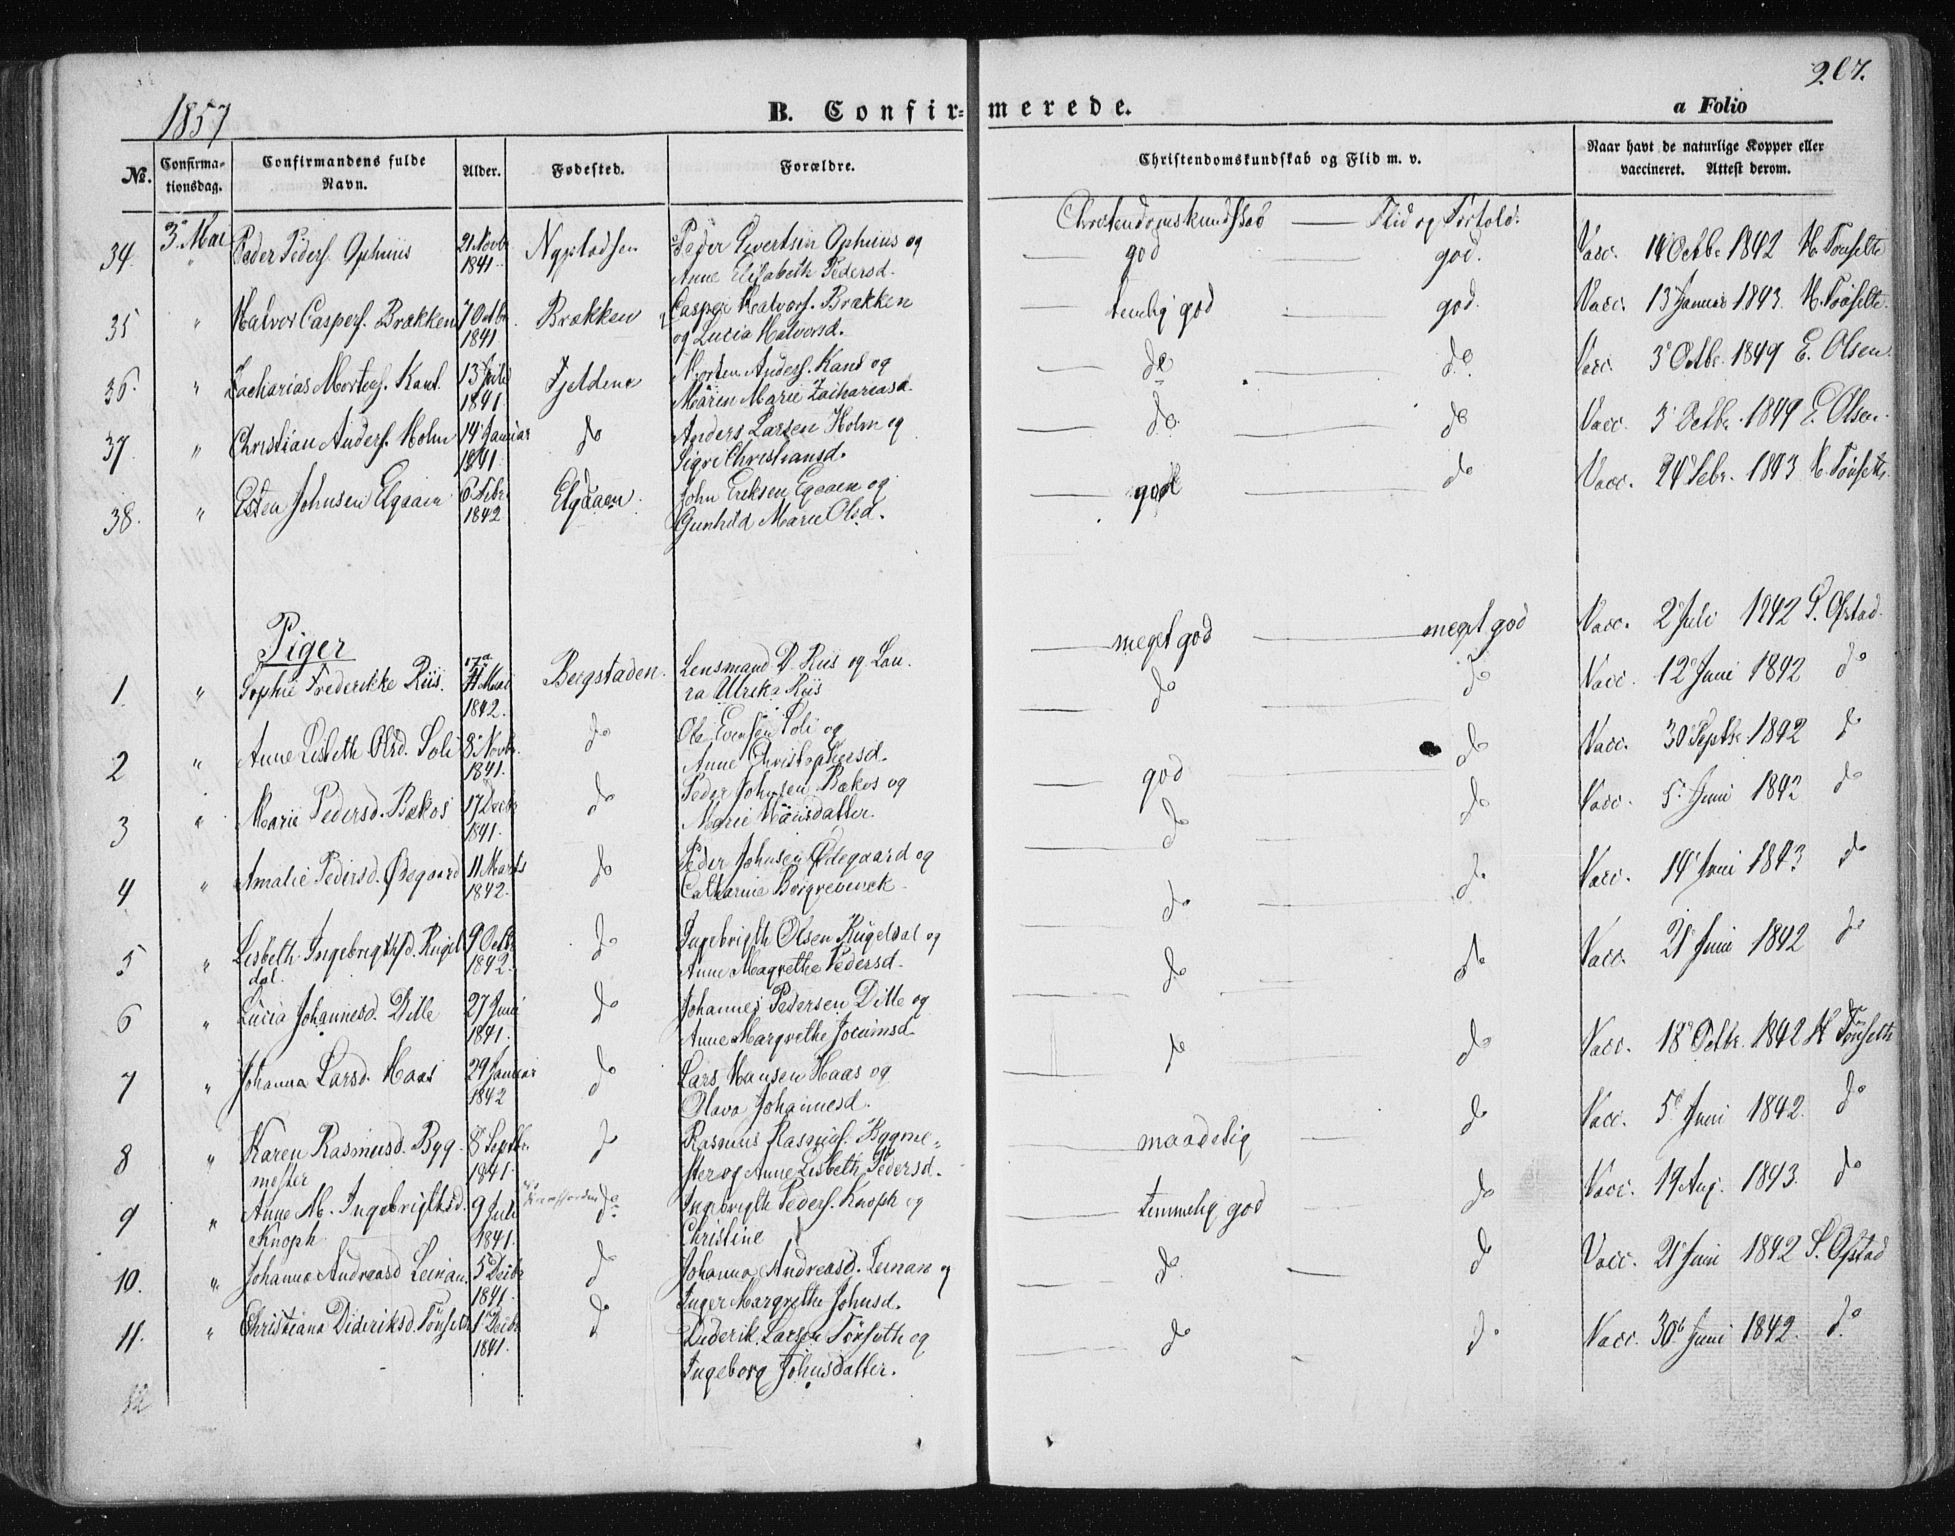 1857
B. Confirmerede.
a Folio
207.
No.
Confirmationsdag.
Confirmandens fulde Navn.
Alder.
Fødested.
Forældre.
Christendomskundskab og Flid m. v.
Naar havt de naturlige Kopper eller vaccineret. Attest derom.
Christendomskundskab — Flid og Forhold.
34. 3' Mai Peder Peders. Ophuus 21 Novbr 1841 Peder Evertsen Ophuus og
Anne Elisabeth Pedersd. god god. Vacc. 1842 H. Tønseth
35 " Halvor Caspers. Brækken 7 Octbr 1841 Brækken Casper Halvors. Brækken
og Lucia Halvorsd. temelig god god. Vacc. 13 Januar 1843. H. Tønseth
36. " Zacharias Mortens. Kant 13 1841 Fjeldene Morten Anders. Kant og
Maren Marie Zachariasd. do do Vacc. 3' Octbr. 1849 E. Olsen.
37. " Christian Anders. Holm 14' Januar 1841 do Anders Larsen Holm og
Sigri Christiansd. do do Vacc. 3' Octbr. 1849 E. Olsen.
38. " Johnsen Elgaaen 6 Febr. 1842 Elgaaen. John Eriksen Egaaen og
Gunhild Marie Olsd. god do Vacc. 24' Febr. 1843 H. Tønseth
Piger
1. " Sophie Frederikke Riis. Mai 1842. Bergstaden. Lensmand D. Riis og Lau-
ra Ulrika Riis meget god meget god Vacc. 2' Juli 1842 Ofstad.
2 " Anne Lisbeth Olsd. Soli 8' Novbr. 1841. do Ole Evensen Soli og
Anne Christophersd. do do Vacc. 12' Juni 1842 do
3 " Marie Pedersd. Bækos 17' Decbr 1841. do Peder Johnsen Bækos og
Marie Hansdatter. god do Vacc. 30' Septbr 1842 do
4 " Amalie Pedersd. Ødegaard 11 Marts 1842. do Peder Johnsen Ødegaard og
Catharina Borgrevenck. do do Vacc. 5' Juni 1842 do
5 " Lisbeth Ingebrigthsd. Rugel-
dal. 9 Octb. 1842. do Ingebrigth Olsen Rugeldal og
Anne Magrethe Pedersd. do do Vacc. 14' Juni 1843 do
6 " Lucia Johannesd. Dille 27 Juni 1841. do Johannes Pedersen Dille og
Anne Margrethe Jocumsd. do do Vacc. 21' Juni 1842 do
7 " Johanna Larsd. Haas 29 Januar 1842 do Lars Hansen Haas og
Olava Johannesd. do do Vacc. 18' Octbr. 1842 H Tønseth
8 " Karen Rasmusd. Byg-
mester 8' Septbr. 1841. do Rasmus Rasmus. Bygme-
ster og Anne Lisbeth Pedersd. maadelig do Vacc. 5' Juni 1842. do
9 " Anne M. Ingebrigthsd.
Knoph 9 Juli 1841. do Ingebrigth Peders. Knoph og
Christine temmelig god do Vacc. 19 Aug. 1843. do
10. " Johanna Andreasd Leinan. 5' Decbr 1841. do Johanna Andreasd. Leinan og
Inger Margrethe Johnsd. do do Vacc. 21' Juni 1842 Ofstad
11. " Christiana Dideriksd. Tønseth 1' Decbr 1841. do Diderik Larsen Tønseth og
Ingeborg Johnsdatter. do do Vacc. 30' Juni 1842. do
12